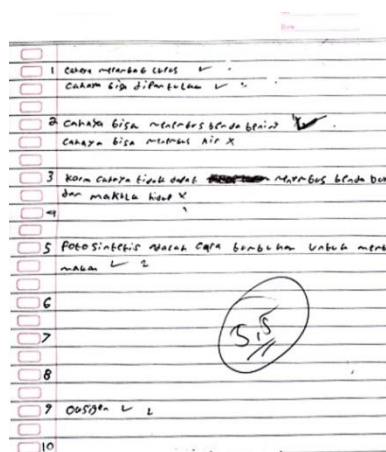 1 cahaya merambat lurus
cahaya bisa dipantulkan
2 cahaya bisa menembus benda bening
cahaya bisa menembus air x
3 karna cahaya tidak dapat menembus benda
dan makhluk hidup x
4
5 fotosintesis adalah cara tumbuhan untuk
makan 2
6
5,5
7
8
9 oksigen 2
10